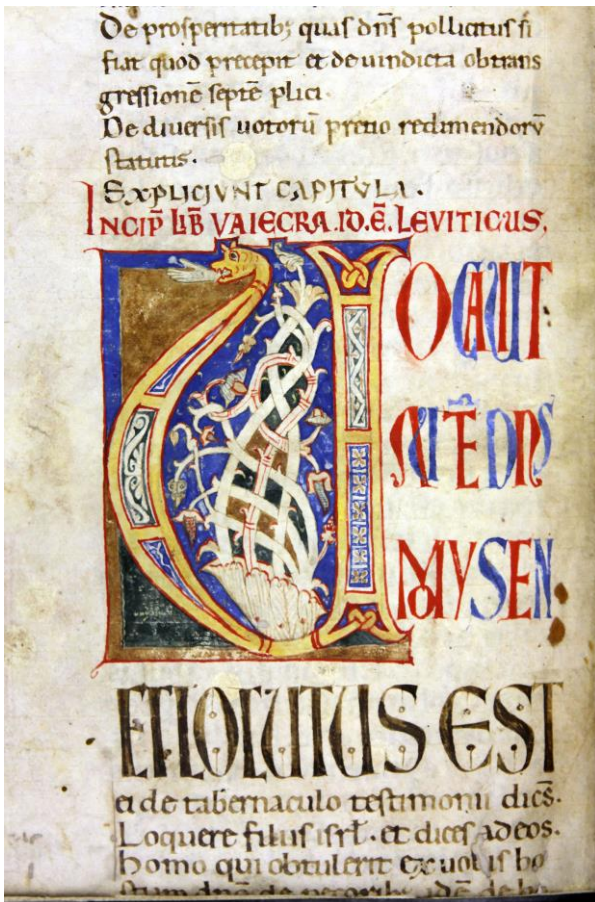 De prosperitatib; quas dn̄s pollicitus si
fiat quod precepit et de uindicta ob trans
gressionē septē plici.
De diuersis uotorū precio redimendorū
statutis.
EXPLICIVNT CAPITVLA.
INCIP̄ LIB̄ VAIECRA.ID.Ē. LEVITICUS,
VOCAUIT
AUTĒ DN̄S
MOYSEN
ET LOCUTUS EST
ei de tabernaculo testimonii dicēs.
Loquere filiis isrl̄. et dices ad eos.
homo qui obtulerit ex uobis ho
stiam dn̄o de pecorib; idē de bo